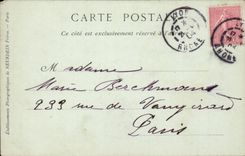 CARTE POSTALE
Ce côté est exclusivement réservé à l'a
LYON
RHONE
RHONE
Madame
Marie Berchmans
233 rue de Vaugirard
Paris
Etablissements Photographiques de NEURDEIN Frères. - Paris